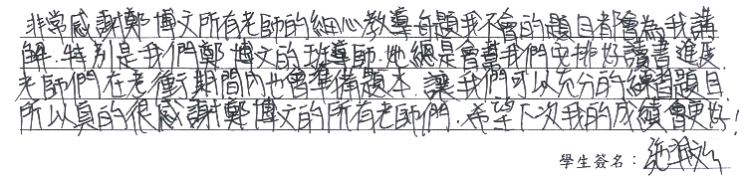 非常感謝鄭博文所有老師的細心教導每題我不會的題目都會為我講
解.特別是我們鄭博文的班導師.她總是會替我們安排好讀書進度.
老師們在考衝期間內也會準備題本.讓我們可以充分的練習題目.
所以真的很感謝鄭博文的所有老師們.希望下次我的成績會更好!
學生簽名: